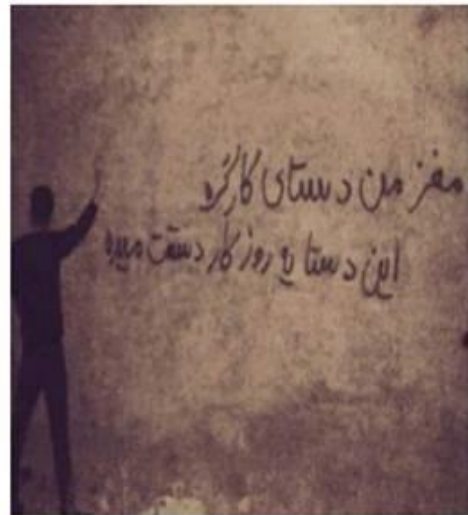 مغز من دستای کارگره
این دستا یه روز کار دستت میده